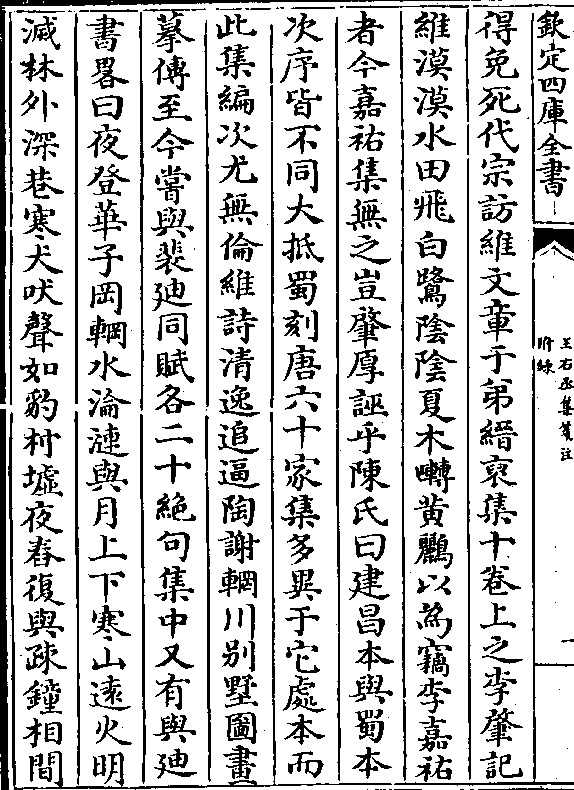 欽定四庫全書
王右丞集箋注
附錄
一
得免死代宗訪維文章于弟縉裒集十卷上之李肇記
維漠漠水田飛白鷺陰陰夏木囀黄鸝以為竊李嘉祐
者今嘉祐集無之豈肇厚誣乎陳氏曰建昌本與蜀本
次序皆不同大抵蜀刻唐六十家集多異于它處本而
此集編次尤無倫維詩清逸追逼陶謝輞川别墅圖畫
摹傳至今嘗與裴廸同賦各二十絶句集中又有與廸
書畧曰夜登華子岡輞水淪漣與月上下寒山逺火明
滅林外深巷寒犬吠聲如豹村墟夜舂復與疎鐘相間